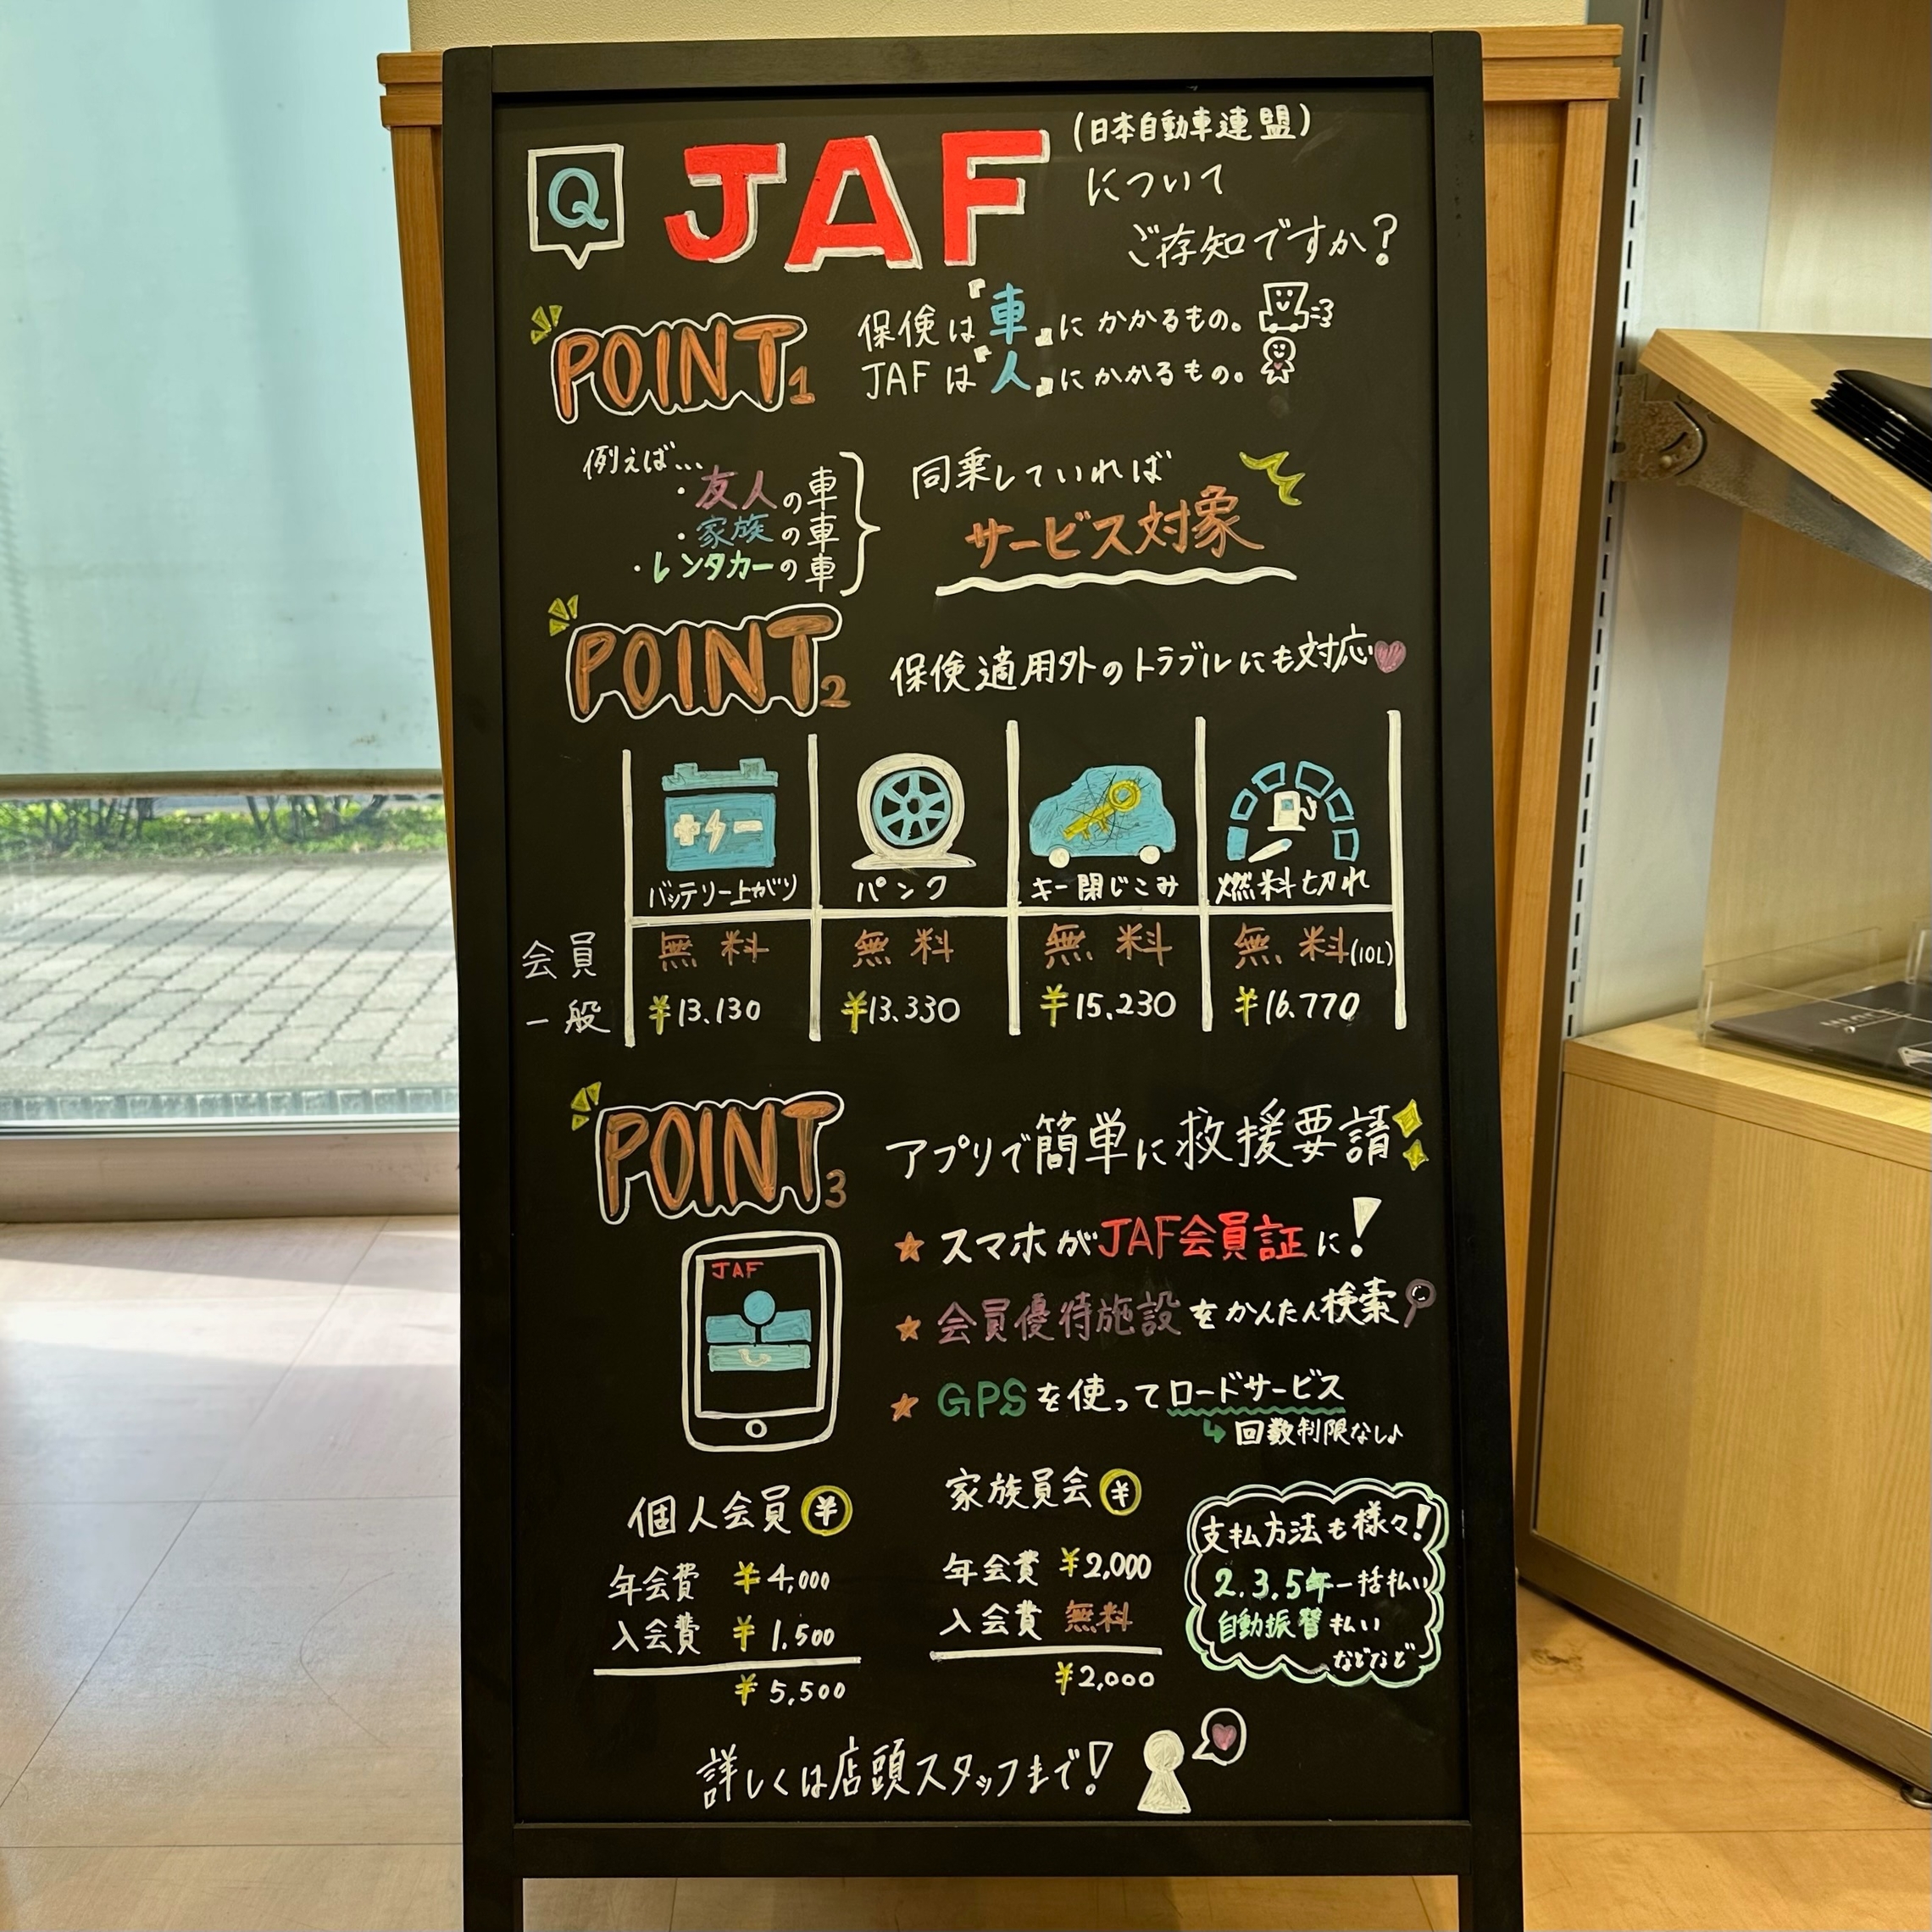 Q JAF (日本自動車連盟)
について
ご存知ですか?
POINT1
保険は『車』にかかるもの。
JAFは『人』にかかるもの。
例えば…
・友人の車
・家族の車
・レンタカーの車
同乗していれば
サービス対象
POINT2
保険適用外のトラブルにも対応
バッテリー上がり パンク キー閉じこみ 燃料切れ
会員 無料 無料 無料 無料(10L)
一般 ¥13.130 ¥13.330 ¥15.230 ¥16.770
POINT3
アプリで簡単に救援要請
JAF
★スマホがJAF会員証に!
★会員優待施設をかんたん検索
★GPSを使ってロードサービス
↳回数制限なし♪
個人会員¥
年会費 ¥4,000
入会費 ¥1.500
¥5,500
家族員会¥
年会費 ¥2,000
入会費 無料
¥2,000
支払方法も様々!
2.3.5年一括払い
自動振替払い
などなど
詳しくは店頭スタッフまで!